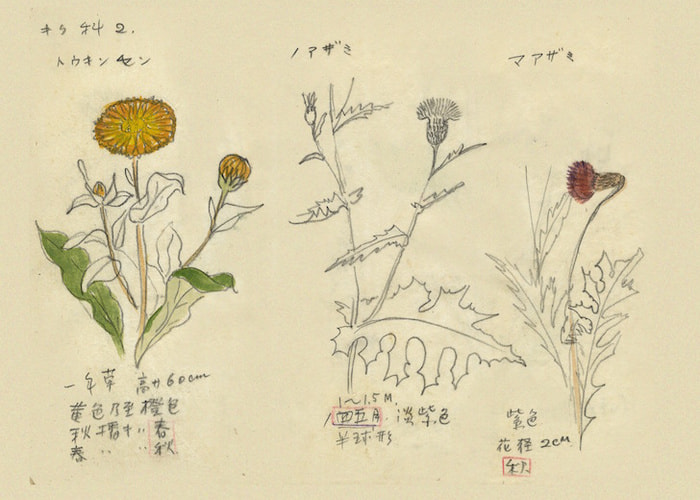 キク科 2.
トウキンセン
一年草 高サ60cm
黄色乃至橙色
秋播キ〃春
春〃〃秋
ノアザミ
1〜1.5M.
四五月 淡紫色
半球形
マアザミ
紫色
花径2cm
秋